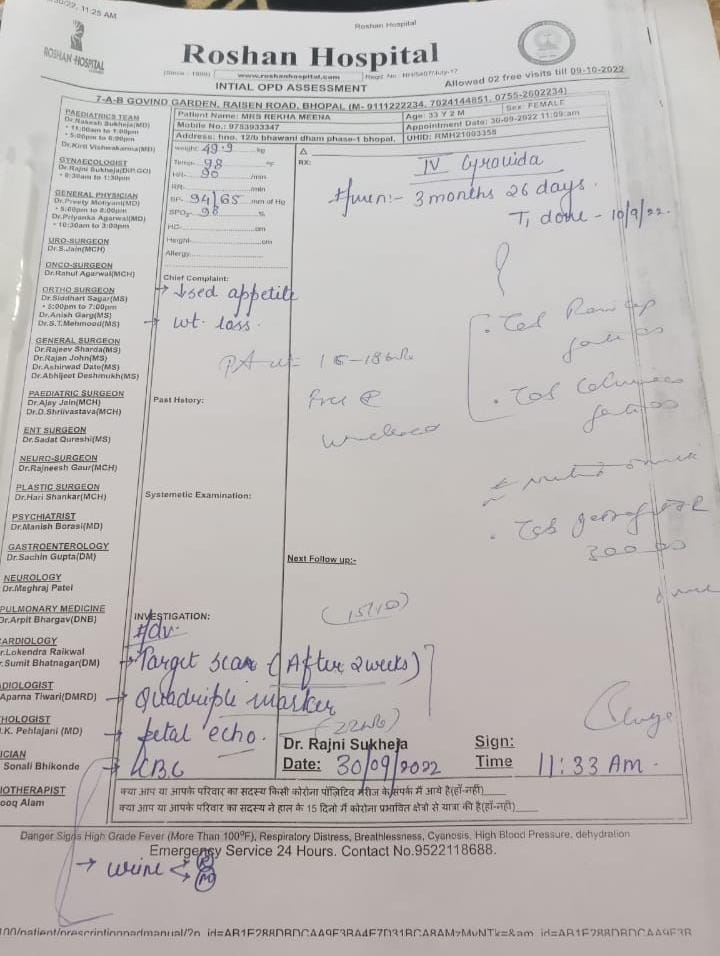 30/22, 11:25 AM
Roshan Hospital
ROSHAN HOSPITAL
Roshan Hospital
(Since : 1999) www.roshanhospital.com Regd. No.: NH/5407/July-17
INTIAL OPD ASSESSMENT
Allowed 02 free visits till 09-10-2022
7-A-B GOVIND GARDEN, RAISEN ROAD, BHOPAL (M- 9111222234, 7024144851, 0755-2602234)
Patient Name: MRS REKHA MEENA
Age: 33 Y 2 M
Sex: FEMALE
Mobile No.: 9753933347
Appointment Date: 30-09-2022 11:09:am
Address: hno. 12/b bhawani dham phase-1 bhopal.
UHID: RMH21003358
PAEDIATRICS TEAM
Dr.Rakesh Sukheja(MD)
- 11:00am to 1:00pm
- 5:00pm to 8:00pm
Dr.Kirti Vishwakarma(MD)
GYNAECOLOGIST
Dr.Rajni Sukheja(DIP.GO)
- 9:30am to 1:30pm
GENERAL PHYSICIAN
Dr.Preety Motiyani(MD)
- 5:00pm to 8:00pm
Dr.Priyanka Agarwal(MD)
- 10:30am to 3:00pm
URO-SURGEON
Dr.S.Jain(MCH)
ONCO-SURGEON
Dr.Rahul Agarwal(MCH)
ORTHO SURGEON
Dr.Siddhart Sagar(MS)
- 5:00pm to 7:00pm
Dr.Anish Garg(MS)
Dr.S.T.Mehmood(MS)
GENERAL SURGEON
Dr.Rajeev Sharda(MS)
Dr.Rajan John(MS)
Dr.Ashirwad Date(MS)
Dr.Abhijeet Deshmukh(MS)
PAEDIATRIC SURGEON
Dr.Ajay Jain(MCH)
Dr.D.Shriivastava(MCH)
ENT SURGEON
Dr.Sadat Qureshi(MS)
NEURO-SURGEON
Dr.Rajneesh Gaur(MCH)
PLASTIC SURGEON
Dr.Hari Shankar(MCH)
PSYCHIATRIST
Dr.Manish Borasi(MD)
GASTROENTEROLOGY
Dr.Sachin Gupta(DM)
NEUROLOGY
Dr.Meghraj Patel
PULMONARY MEDICINE
Dr.Arpit Bhargav(DNB)
CARDIOLOGY
r.Lokendra Raikwal
Sumit Bhatnagar(DM)
DIOLOGIST
Aparna Tiwari(DMRD)
HOLOGIST
K. Pehlajani (MD)
ICIAN
Sonali Bhikonde
IOTHERAPIST
ooq Alam
Weight: 49.9 kg
Temp- 98
HR- 90 /min
RR- /min
BP- 94/65 mm of Hg
SPO2- 98 %
HC- cm
Height- cm
Allergy
RX:
IV Gravida
3 months 26 days
T1 done - 10/9/22.
Chief Complaint:
→ ↓sed appetite
→ wt. loss.
PA ut 16-18 wk
Past Hstory:
Systemetic Examination:
300
Next Follow up:-
(15/10)
INVESTIGATION:
Adv.
→ Target scan (After 2 weeks)
→ Quadriple marker
→ fetal echo. (22wk)
→ CBC
Dr. Rajni Sukheja
Sign:
Date: 30/09/2022
Time 11:33 Am.
क्या आप या आपके परिवार का सदस्य किसी कोरोना पॉजिटिव मरीज के संपर्क में आये है(हॉ-नहीं)
क्या आप या आपके परिवार का सदस्य ने हाल के 15 दिनों में कोरोना प्रभावित क्षेत्रो से यात्रा की है(हॉ-नहीं)
Danger Signs High Grade Fever (More Than 100°F), Respiratory Distress, Breathlessness, Cyanosis, High Blood Pressure, dehydration
Emergency Service 24 Hours. Contact No.9522118688.
→ urine < R
M